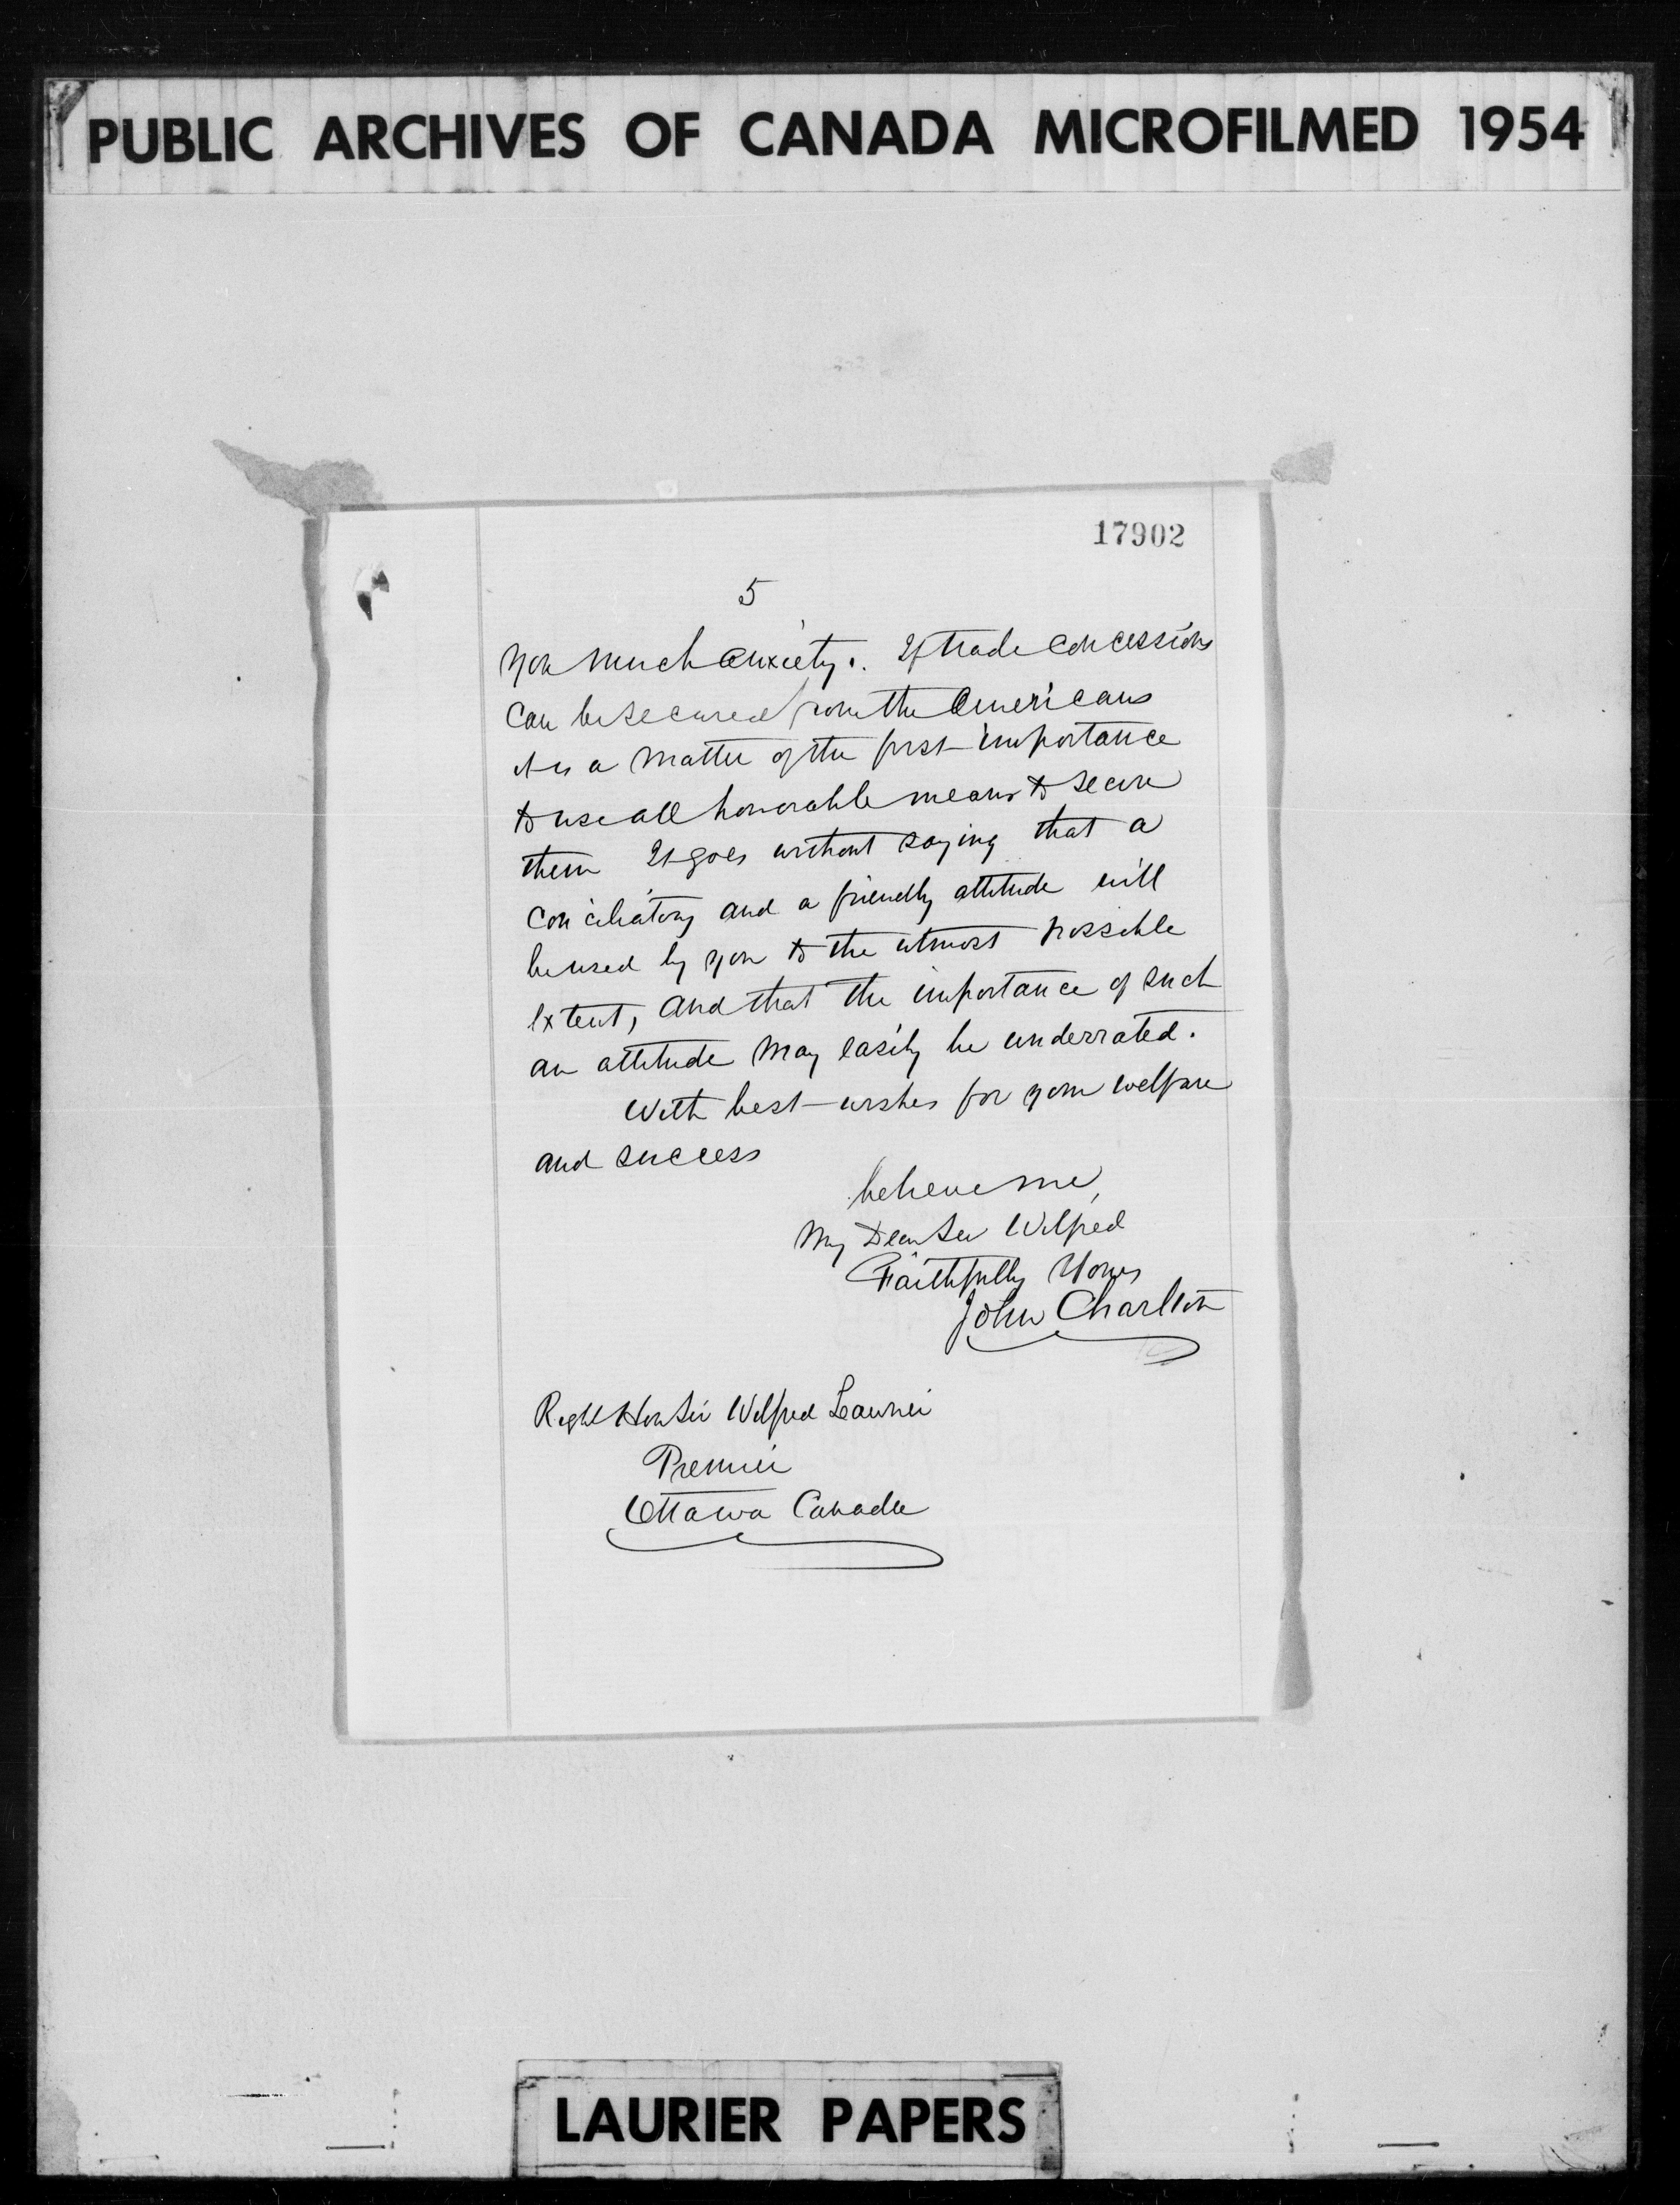 PUBLIC ARCHIVES OF CANADA MICROFILMED 1954
17902
5
you much anxiety. If trade concessions
can be secured from the Americans
it is a matter of the first importance
to use all honorable means to secure
them It goes without saying that a
conciliatory and a friendly attitude will
be used by you to the utmost possible
extent, and that the importance of such
an attitude may easily be underrated.
With best wishes for your welfare
and success
believe me,
My Dear Sir Wilfred
Faithfully Yours
John Charlton
Right Hon Sir Wilfred Laurier
Premier
Ottawa Canada
LAURIER PAPERS